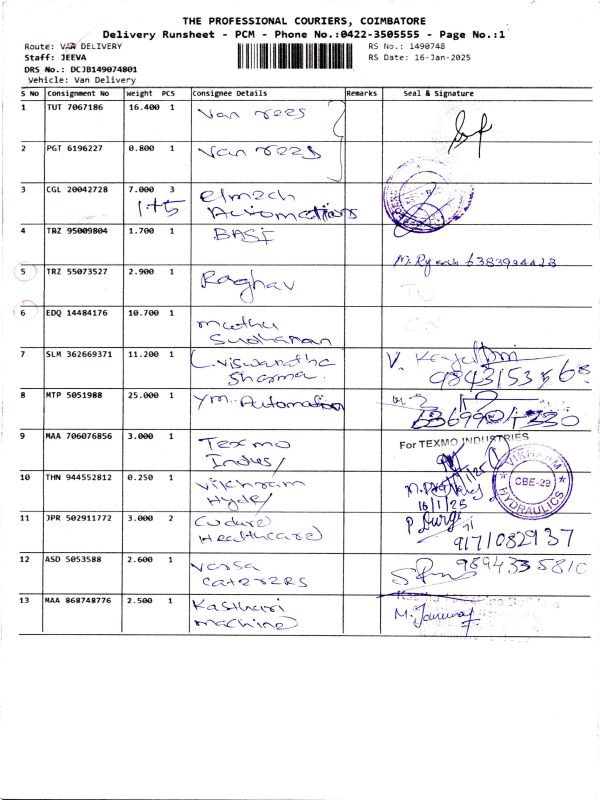 THE PROFESSIONAL COURIERS, COIMBATORE
Delivery Runsheet - PCM - Phone No.:0422-3505555 - Page No.:1
Route: VAN DELIVERY
RS No.: 1490748
Staff: JEEVA
RS Date: 16-Jan-2025
DRS No.: DCJB149074801
Vehicle: Van Delivery
S No Consignment No Weight PCS Consignee Details Remarks Seal & Signature
1 TUT 7067186 16.400 1 Van rees
2 PGT 6196227 0.800 1 Van rees
3 CGL 20042728 7.000 3 elmech
1+5 Automations
4 TRZ 95009804 1.700 1 BASF
5 TRZ 55073527 2.900 1 Raghav
6 EDQ 14484176 10.700 1 muthu
Sudharsan
7 SLM 362669371 11.200 1 L. Viswandha
Sharma
9843153568
8 MTP 5051988 25.000 1 YM. Automation
9 MAA 706076856 3.000 1 Texmo
Indus/
For TEXMO INDUSTRIES
10 THN 944552812 0.250 1 Vikhram
Hyd/
16/1/25
VIKHRAM HYDRAULICS
CBE-29
11 JPR 502911772 3.000 2
Healthcare
P. Durga
9171082937
12 ASD 5053588 2.600 1 Varsa
CATERERS
9894335810
13 MAA 868748776 2.500 1 Kasthuri
machine
M.